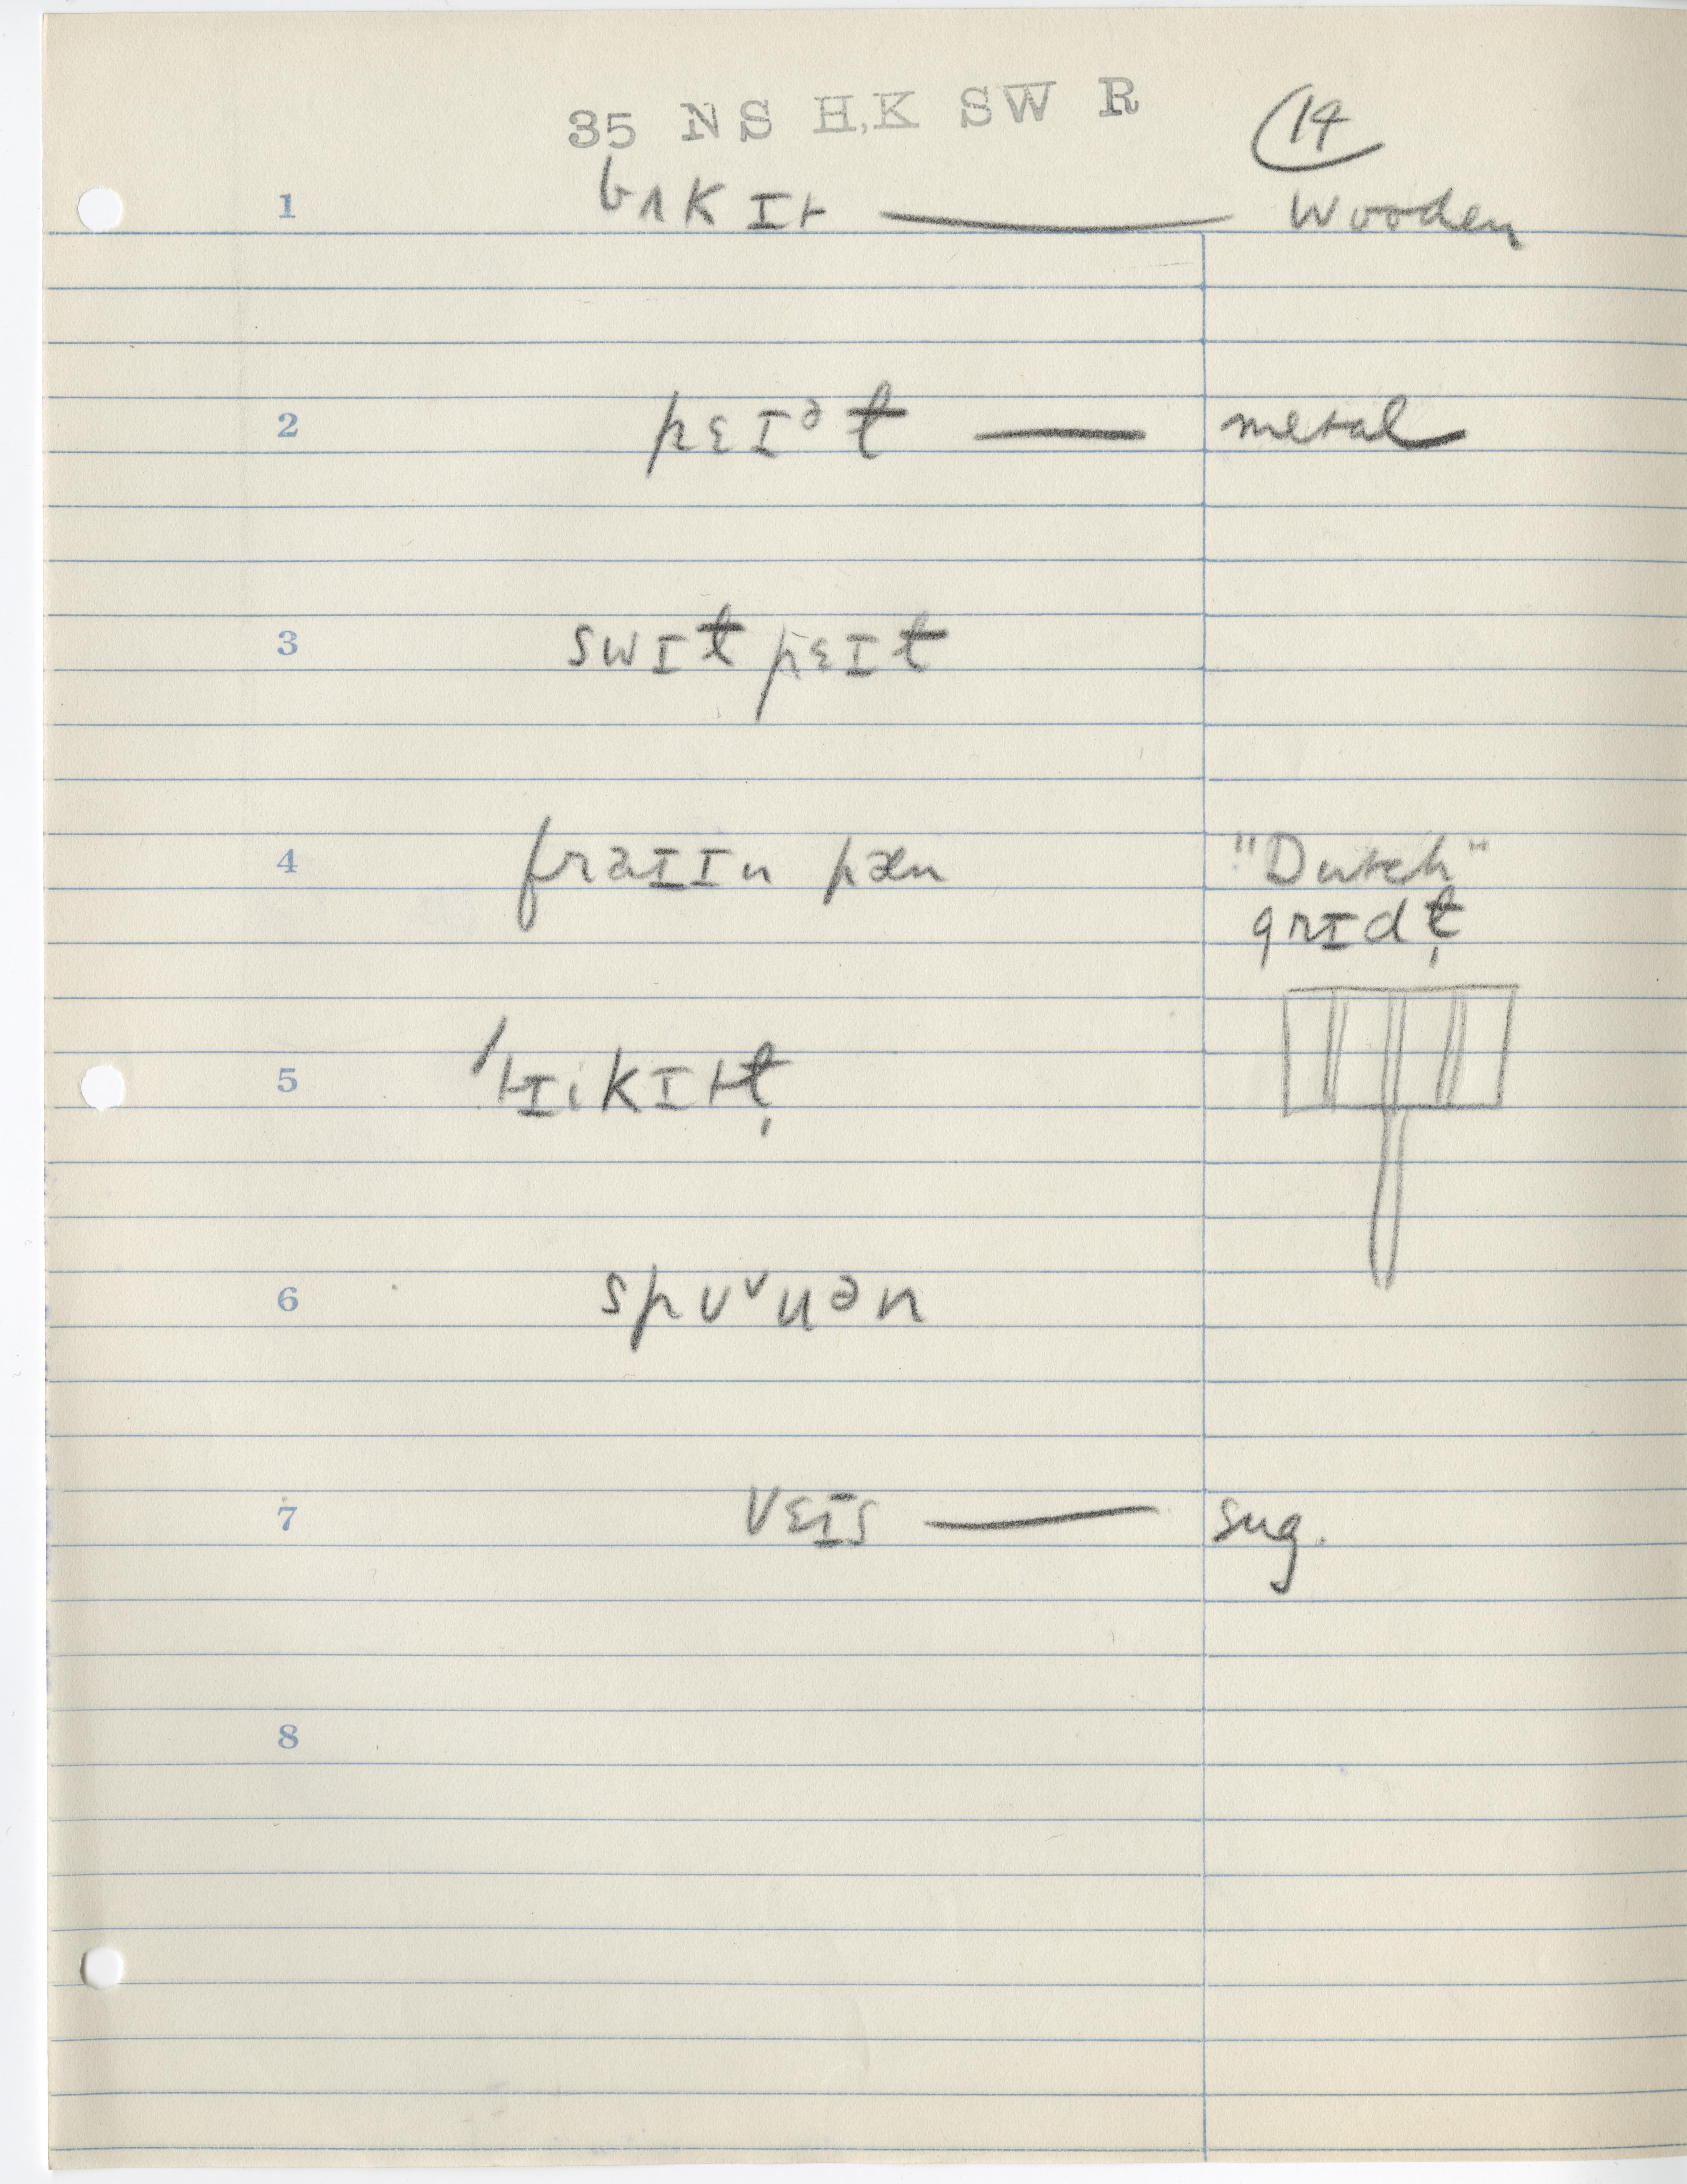 35 NS H,K SW R
14
1 bʌkɪt — wooden
2 pɛɪᵊɫ — metal
3 swɪɫ pɛɪɫ
4 fraɪɪn pæn "Dutch"
grɪdɫ̩
5
6 spᴜˇuᵊn
7 vɛɪs — sug.
8